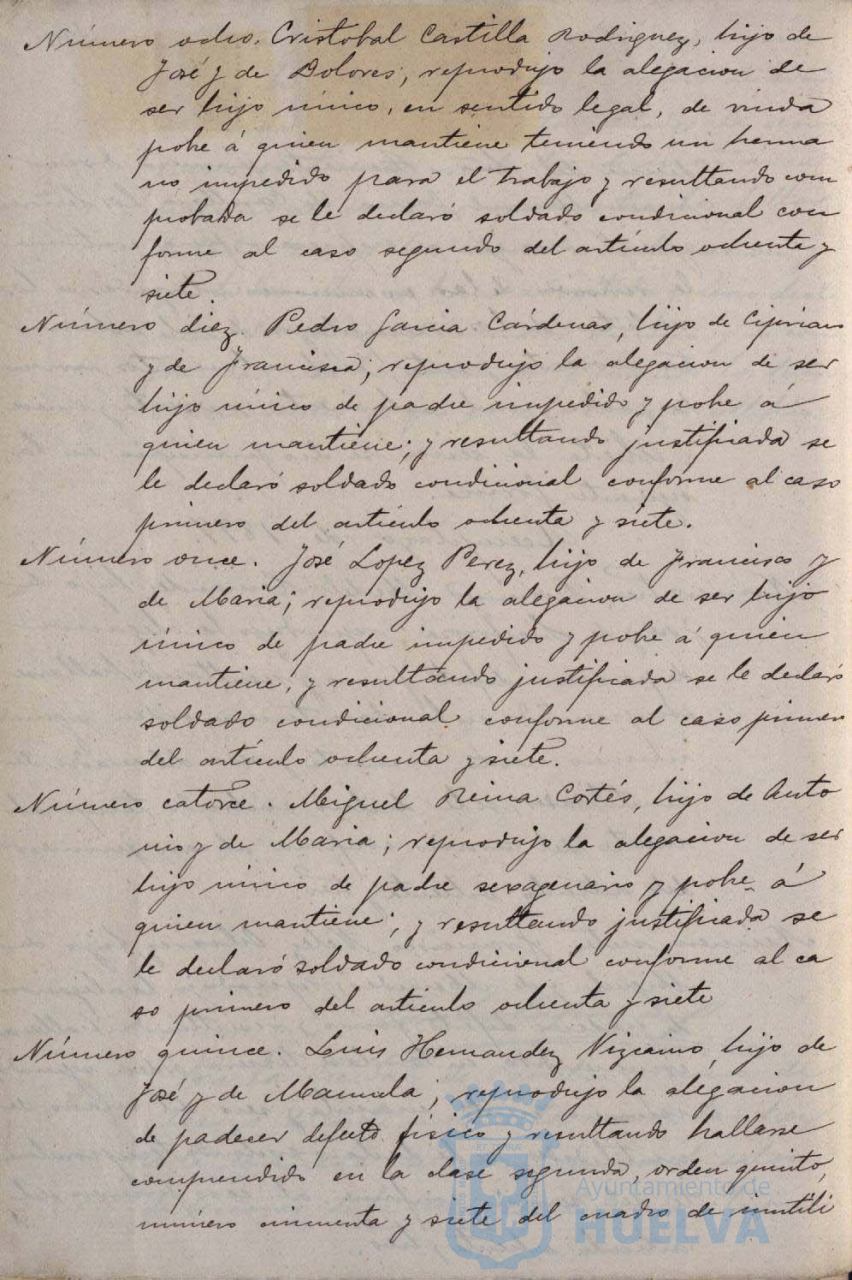 Número ocho. Cristobal Castilla Rodriguez, hijo de
José y de Dolores, reprodujo la alegacion de
ser hijo único, en sentido legal, de viuda
pobre á quien mantiene teniendo un herma
no impedido para el trabajo y resultando com
probada se le declaró soldado condicional con
forme al caso segundo del artículo ochenta y
siete.
Número diez. Pedro Garcia Cárdenas, hijo de Cipriano
y de Francisca; reprodujo la alegacion de ser
hijo único de padre impedido y pobre á
quien mantiene; y resultando justificada se
le declaró soldado condicional conforme al caso
primero del artículo ochenta y siete.
Número once. José Lopez Perez, hijo de Francisco y
de Maria; reprodujo la alegacion de ser hijo
único de padre impedido y pobre á quien
mantiene, y resultando justificada se le declaró
soldado condicional conforme al caso primero
del artículo ochenta y siete.
Número catorce. Miguel Reina Cortés, hijo de Anto
nio y de Maria; reprodujo la alegacion de ser
hijo único de padre sexagenario y pobre á
quien mantiene; y resultando justificada se
le declaró soldado condicional conforme al ca
so primero del artículo ochenta y siete
Número quince. Luis Hernandez Vizcaino, hijo de
José y de Manuela; reprodujo la alegacion
de padecer defecto físico y resultando hallarse
comprendido en la clase segunda, orden quinto,
número cincuenta y siete del cuadro de inutili
Ayuntamiento de
HUELVA